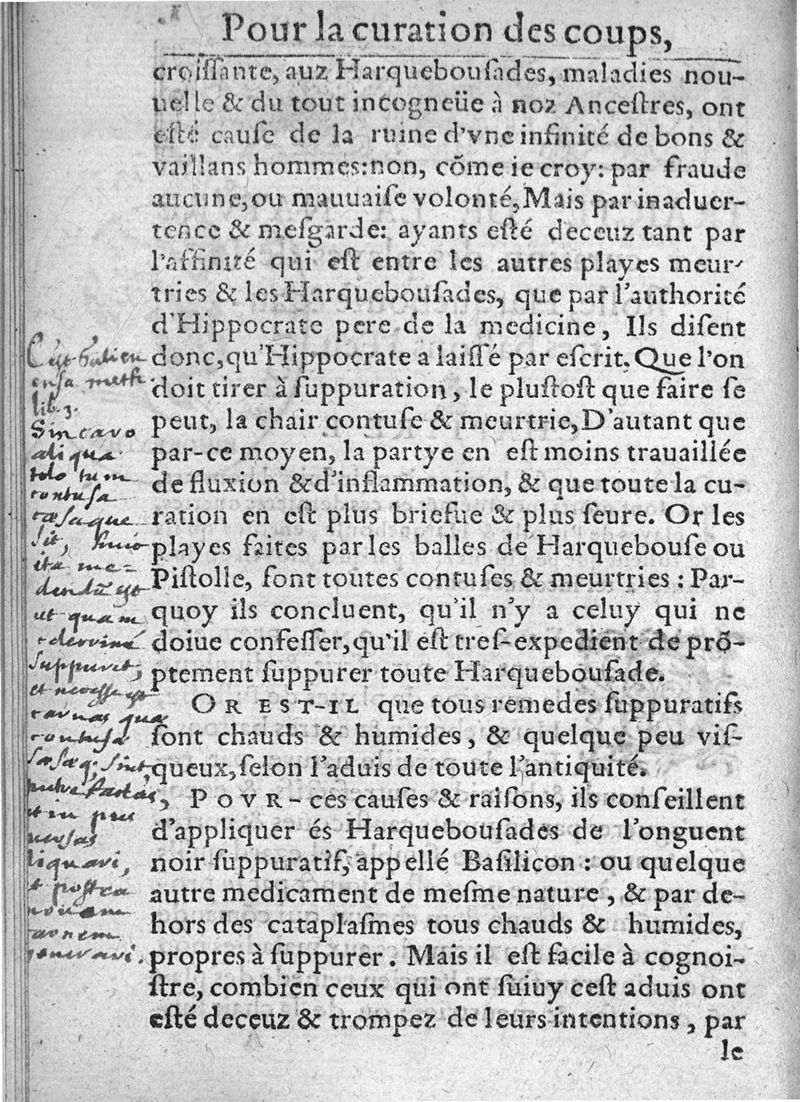 Pour la curation des coups,
croiſſante, auz Harquebouſades, maladies nou-
uelle & du tout incogneüe à noz Anceſtres, ont
eſté cauſe de la ruine d'vne infinité de bons &
vaillans hommes:non, cõme ie croy: par fraude
aucune,ou mauuaiſe volonté,Mais par inaduer-
tence & meſgarde: ayants eſté deceuz tant par
l'affinité qui eſt entre les autres playes meur-
tries & les Harquebouſades, que par l'authorité
d'Hippocrate pere de la medicine, Ils diſent
donc,qu'Hippocrate a laiſſé par eſcrit. Que l'on
doit tirer à ſuppuration, le pluſtoſt que faire ſe
peut, la chair contuſe & meurtrie,D'autant que
par-ce moyen, la partye en eſt moins trauaillée
de fluxion &d'inflammation, & que toute la cu-
ration en eſt plus briefue & plus ſeure. Or les
playes faites par les balles de Harquebouſe ou
Piſtolle, ſont toutes contuſes & meurtries : Par-
quoy ils concluent, qu'il n'y a celuy qui ne
doiue confeſſer,qu'il eſt treſ-expedient de prõ-
ptement ſuppurer toute Harquebouſade.
OR EST-IL que tous remedes ſuppuratifs
ſont chauds & humides, & quelque peu viſ-
queux,ſelon l'aduis de toute l'antiquité.
POVR-ces cauſes & raiſons, ils conſeillent
d'appliquer és Harquebouſades de l'onguent
noir ſuppuratif, appellé Baſilicon : ou quelque
autre medicament de meſme nature, & par de-
hors des cataplaſmes tous chauds & humides,
propres à ſuppurer. Mais il eſt facile à cognoi-
ſtre, combien ceux qui ont ſuiuy ceſt aduis ont
eſté deceuz & trompez de leurs intentions, par
le
C'est Galien
en sa meth
lib. 3.
Sin caro
aliqua
telo tum
contusa
cæsaque
sit, huic
ita me-
dendũ est
ut quam
suppuret,
et necesse est
carnes quæ
contusæ
cæsæq; sint,
in pus
versas
liquari,
et postea
novam
carnem
generari.